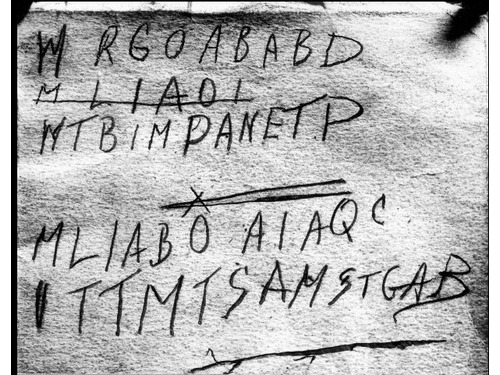 W RGOABABD
MLIAOI
WTBIMPANETP
MLIABO AIAQC
ITTMTSAMSTGAB